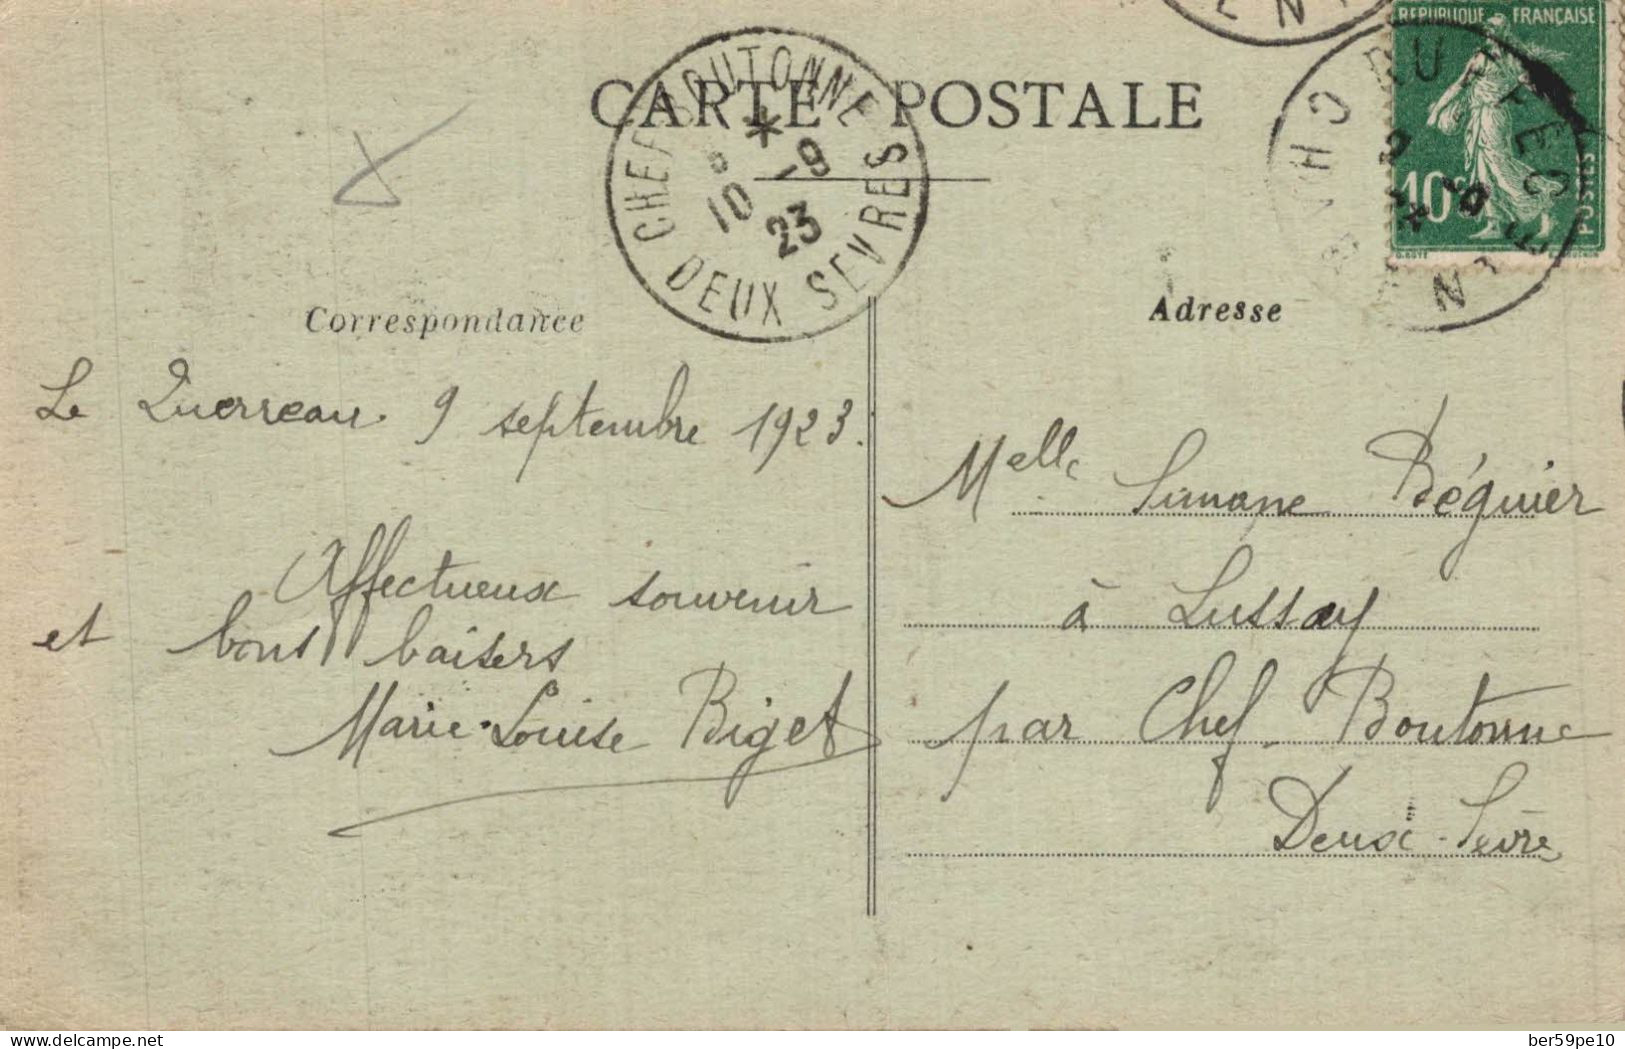 CARTE POSTALE
CHEF BOUTONNE
* 10 -9
23
DEUX SEVRES
REPUBLIQUE FRANÇAISE
10c
POSTES
RUFFEC
CHARENTE
Correspondance
Adresse
Le Querreau 9 septembre 1923.
Affectueux souvenir
et bons baisers
Marie-Louise Biget
Melle Simone Béguier
à Lussay
par Chef-Boutonne
Deux-Sèvres
delcampe.net
ber59pe10